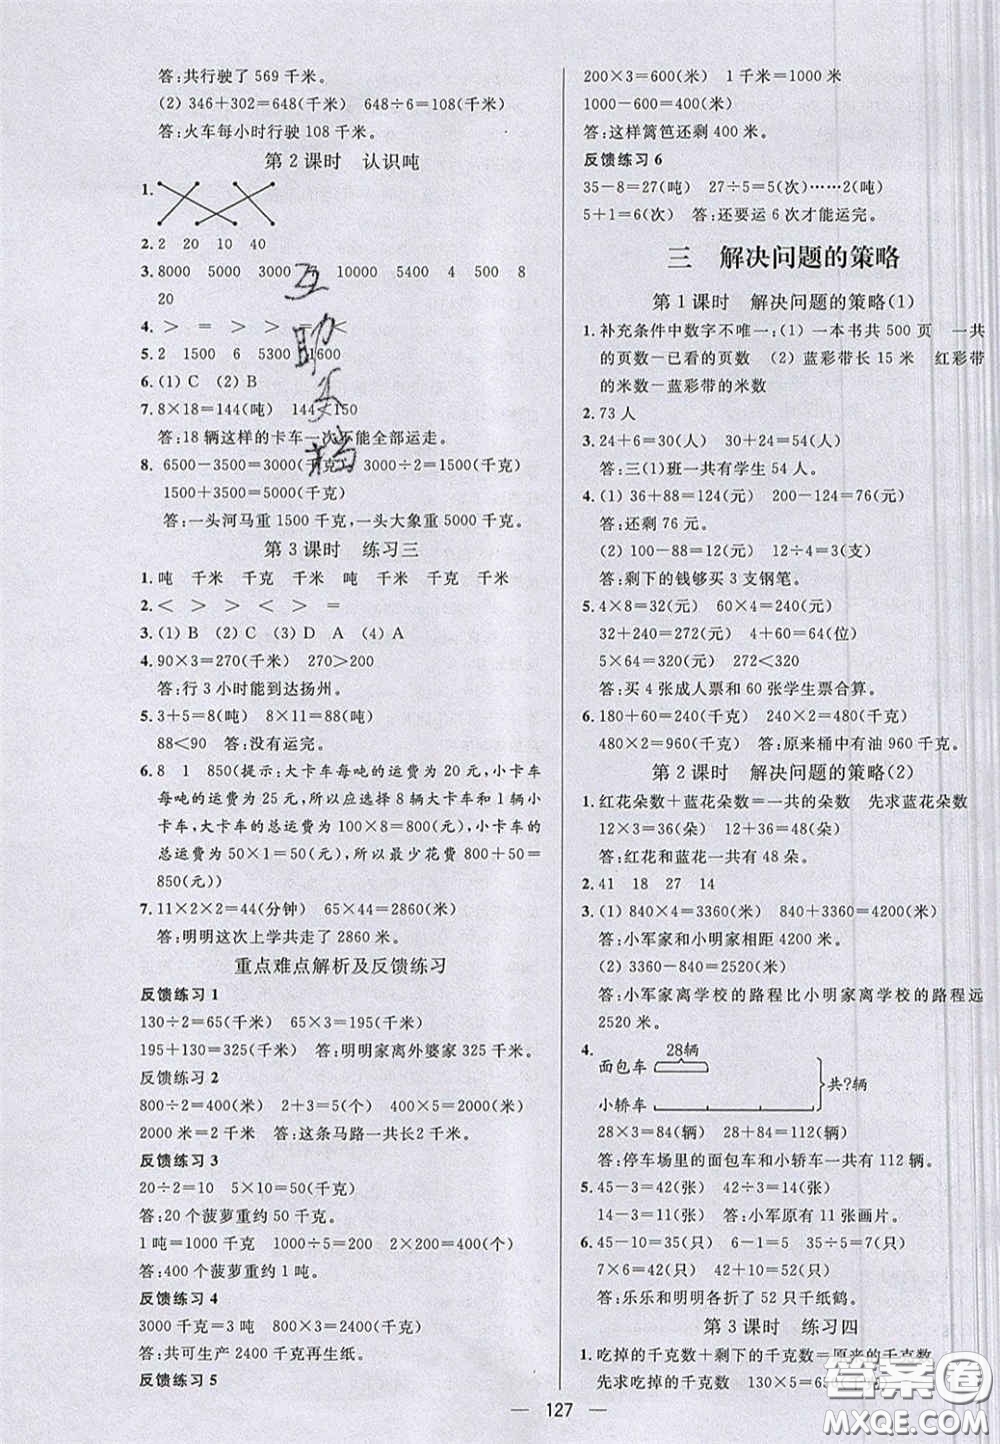 答:共行驶了 569 千米。
(2) 346+302=648(千米) 648÷6=108(千米)
答:火车每小时行驶 108 千米。
第 2 课时 认识吨
1.
2. 2 20 10 40
3. 8000 5000 3000 7 10000 5400 4 500 8
20
4. > = < > > = <
5. 2 1500 6 5300 1600
6. (1) C (2) B
7. 8×18=144(吨) 144<150
答:18 辆这样的卡车一次不能全部运走。
8. 6500-3500=3000(千克) 3000÷2=1500(千克)
1500+3500=5000(千克)
答:一头河马重 1500 千克,一头大象重 5000 千克。
第 3 课时 练习三
1. 吨 千米 千克 千米 吨 千米 千克 千米
2. < > > < > =
3. (1) B (2) C (3) D A (4) A
4. 90×3=270(千米) 270>200
答:行 3 小时能到达扬州。
5. 3+5=8(吨) 8×11=88(吨)
88<90 答:没有运完。
6. 8 1 850(提示:大卡车每吨的运费为 20 元,小卡车
每吨的运费为 25 元,所以应选择 8 辆大卡车和 1 辆小
卡车,大卡车的总运费为 100×8=800(元),小卡车的
总运费为 50×1=50(元),所以最少花费 800+50=
850(元))
7. 11×2×2=44(分钟) 65×44=2860(米)
答:明明这次上学共走了 2860 米。
重点难点解析及反馈练习
反馈练习 1
130÷2=65(千米) 65×3=195(千米)
195+130=325(千米) 答:明明家离外婆家 325 千米。
反馈练习 2
800÷2=400(米) 2+3=5(米) 400×5=2000(米)
2000 米=2 千米 答:这条马路一共长2 千米。
反馈练习 3
20÷2=10 5×10=50(千克)
答:20 个菠萝重约 50 千克。
1 吨=1000 千克 1000÷5=200 2×200=400(个)
答:400 个菠萝重约 1 吨。
反馈练习 4
3000 千克=3 吨 800×3=2400(千克)
答:共可生产 2400 千克再生纸。
反馈练习 5
200×3=600(米) 1 千米=1000 米
1000-600=400(米)
答:这样篱笆还剩 400 米。
反馈练习 6
35-8=27(吨) 27÷5=5(次)……2(吨)
5+1=6(次) 答:还要运 6 次才能运完。
三 解决问题的策略
第 1 课时 解决问题的策略(1)
1. 补充条件中数字不唯一:(1) 一本书共 500 页 一共
的页数-已看的页数 (2) 蓝彩带长 15 米 红彩带
的米数-蓝彩带的米数
2. 73 人
3. 24+6=30(人) 24+30=54(人)
答:三(1)班一共有学生 54 人。
4. (1) 36+88=124(元) 200-124=76(元)
答:还剩 76 元。
(2) 100-88=12(元) 12÷4=3(支)
答:剩下的钱够买 3 支钢笔。
5. 4×8=32(元) 60×4=240(元)
32+240=272(元) 4+60=64(位)
5×64=320(元) 272<320
答:买 4 张成人票和 60 张学生票合算。
6. 180+60=240(千克) 240×2=480(千克)
480×2=960(千克) 答:原来桶中有油 960 千克。
第 2 课时 解决问题的策略(2)
1. 红花朵数+蓝花朵数=一共的朵数 先求蓝花朵数
12×3=36(朵) 12+36=48(朵)
答:红花和蓝花一共有 48 朵。
2. 41 18 27 14
3. (1) 840×4=3360(米) 840+3360=4200(米)
答:小军家和小明家相距 4200 米。
(2) 3360-840=2520(米)
答:小军家离学校的路程比小明家离学校的路程远
2520 米。
4. 28辆
面包车
共?辆
小轿车
28×3=84(辆) 28+84=112(辆)
答:停车场里的面包车和小轿车一共有 112 辆。
5. 45-3=42(张) 42÷3=14(张)
14-3=11(张) 答:小军原有 11 张画片。
6. 45-10=35(只) 6-1=5 35÷5=7(只)
7×6=42(只) 42+10=52(只)
答:乐乐和明明各折了 52 只千纸鹤。
第 3 课时 练习四
1. 吃掉的千克数+剩下的千克数=原来的千克数
先求吃掉的千克数 130×5=650(千克)
127
互助文档
答案圈
MXQE.COM